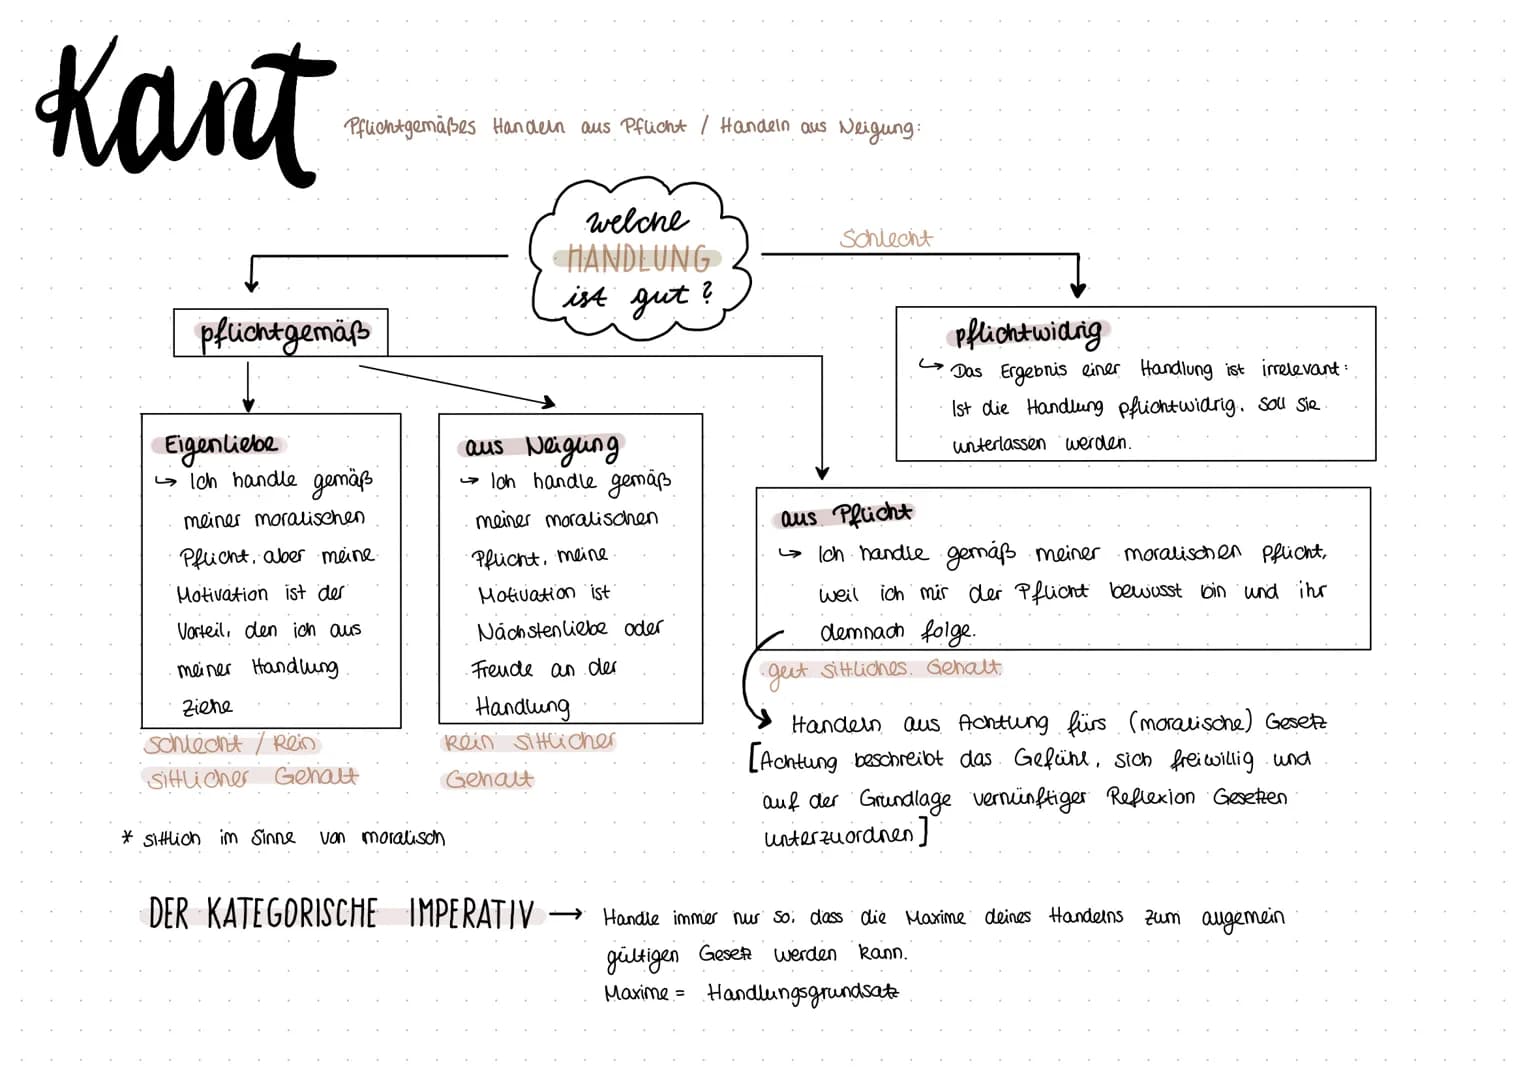 Kant
Pflichtgemäßes Handeln aus Pflicht / Handeln aus Neigung:
welche
HANDLUNG
ist gut?
Schlecht
pflichtgemäß
pflichtwidrig
↳ Das Ergebnis einer Handlung ist irrelevant:
Ist die Handlung pflichtwidrig, soll sie
unterlassen werden.
Eigenliebe
↳ Ich handle gemäß
meiner moralischen
Pflicht, aber meine
Motivation ist der
Vorteil, den ich aus
meiner Handlung
ziehe
schlecht / kein
sittlicher Gehalt
aus Neigung
↳ Ich handle gemäß
meiner moralischen
Pflicht, meine
Motivation ist
Nächstenliebe oder
Freude an der
Handlung
kein sittlicher
Gehalt
aus Pflicht
↳ Ich handle gemäß meiner moralischen Pflicht,
weil ich mir der Pflicht bewusst bin und ihr
demnach folge.
gut sittliches Gehalt
Handeln aus Achtung fürs (moralische) Gesetz
[Achtung beschreibt das Gefühl, sich freiwillig und
auf der Grundlage vernünftiger Reflexion Gesetzen
unterzuordnen]
* sittlich im Sinne von moralisch
DER KATEGORISCHE IMPERATIV → Handle immer nur so, dass die Maxime deines Handelns zum allgemein
gültigen Gesetz werden kann.
Maxime = Handlungsgrundsatz